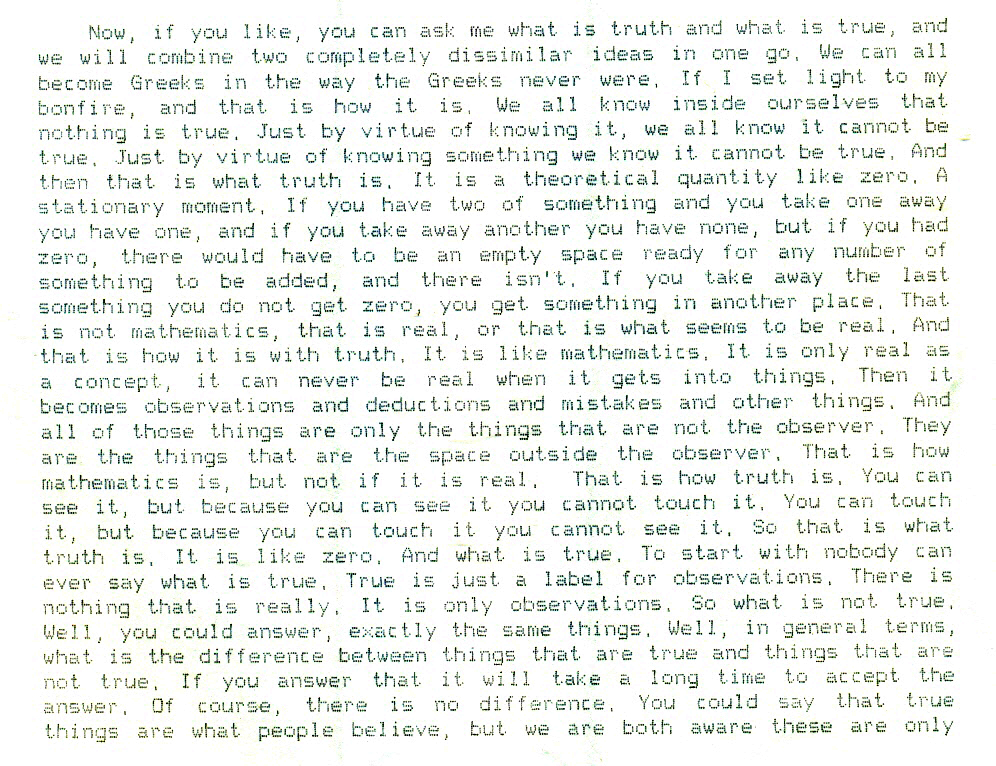 Now, if you like, you can ask me what is truth and what is true, and
we will combine two completely dissimilar ideas in one go. We can all
become Greeks in the way the Greeks never were. If I set light to my
bonfire, and that is how it is. We all know inside ourselves that
nothing is true. Just by virtue of knowing it, we all know it cannot be
true. Just by virtue of knowing something we know it cannot be true. And
then that is what truth is. It is a theoretical quantity like zero. A
stationary moment. If you have two of something and you take one away
you have one, and if you take away another you have none, but if you had
zero, there would have to be an empty space ready for any number of
something to be added, and there isn't. If you take away the last
something you do not get zero, you get something in another place. That
is not mathematics, that is real, or that is what seems to be real. And
that is how it is with truth. It is like mathematics. It is only real as
a concept, it can never be real when it gets into things. Then it
becomes observations and deductions and mistakes and other things. And
all of those things are only the things that are not the observer. They
are the things that are the space outside the observer. That is how
mathematics is, but not if it is real. That is how truth is. You can
see it, but because you can see it you cannot touch it. You can touch
it, but because you can touch it you cannot see it. So that is what
truth is. It is like zero. And what is true. To start with nobody can
ever say what is true. True is just a label for observations. There is
nothing that is really. It is only observations. So what is not true.
Well, you could answer, exactly the same things. Well, in general terms,
what is the difference between things that are true and things that are
not true. If you answer that it will take a long time to accept the
answer. Of course, there is no difference. You could say that true
things are what people believe, but we are both aware these are only